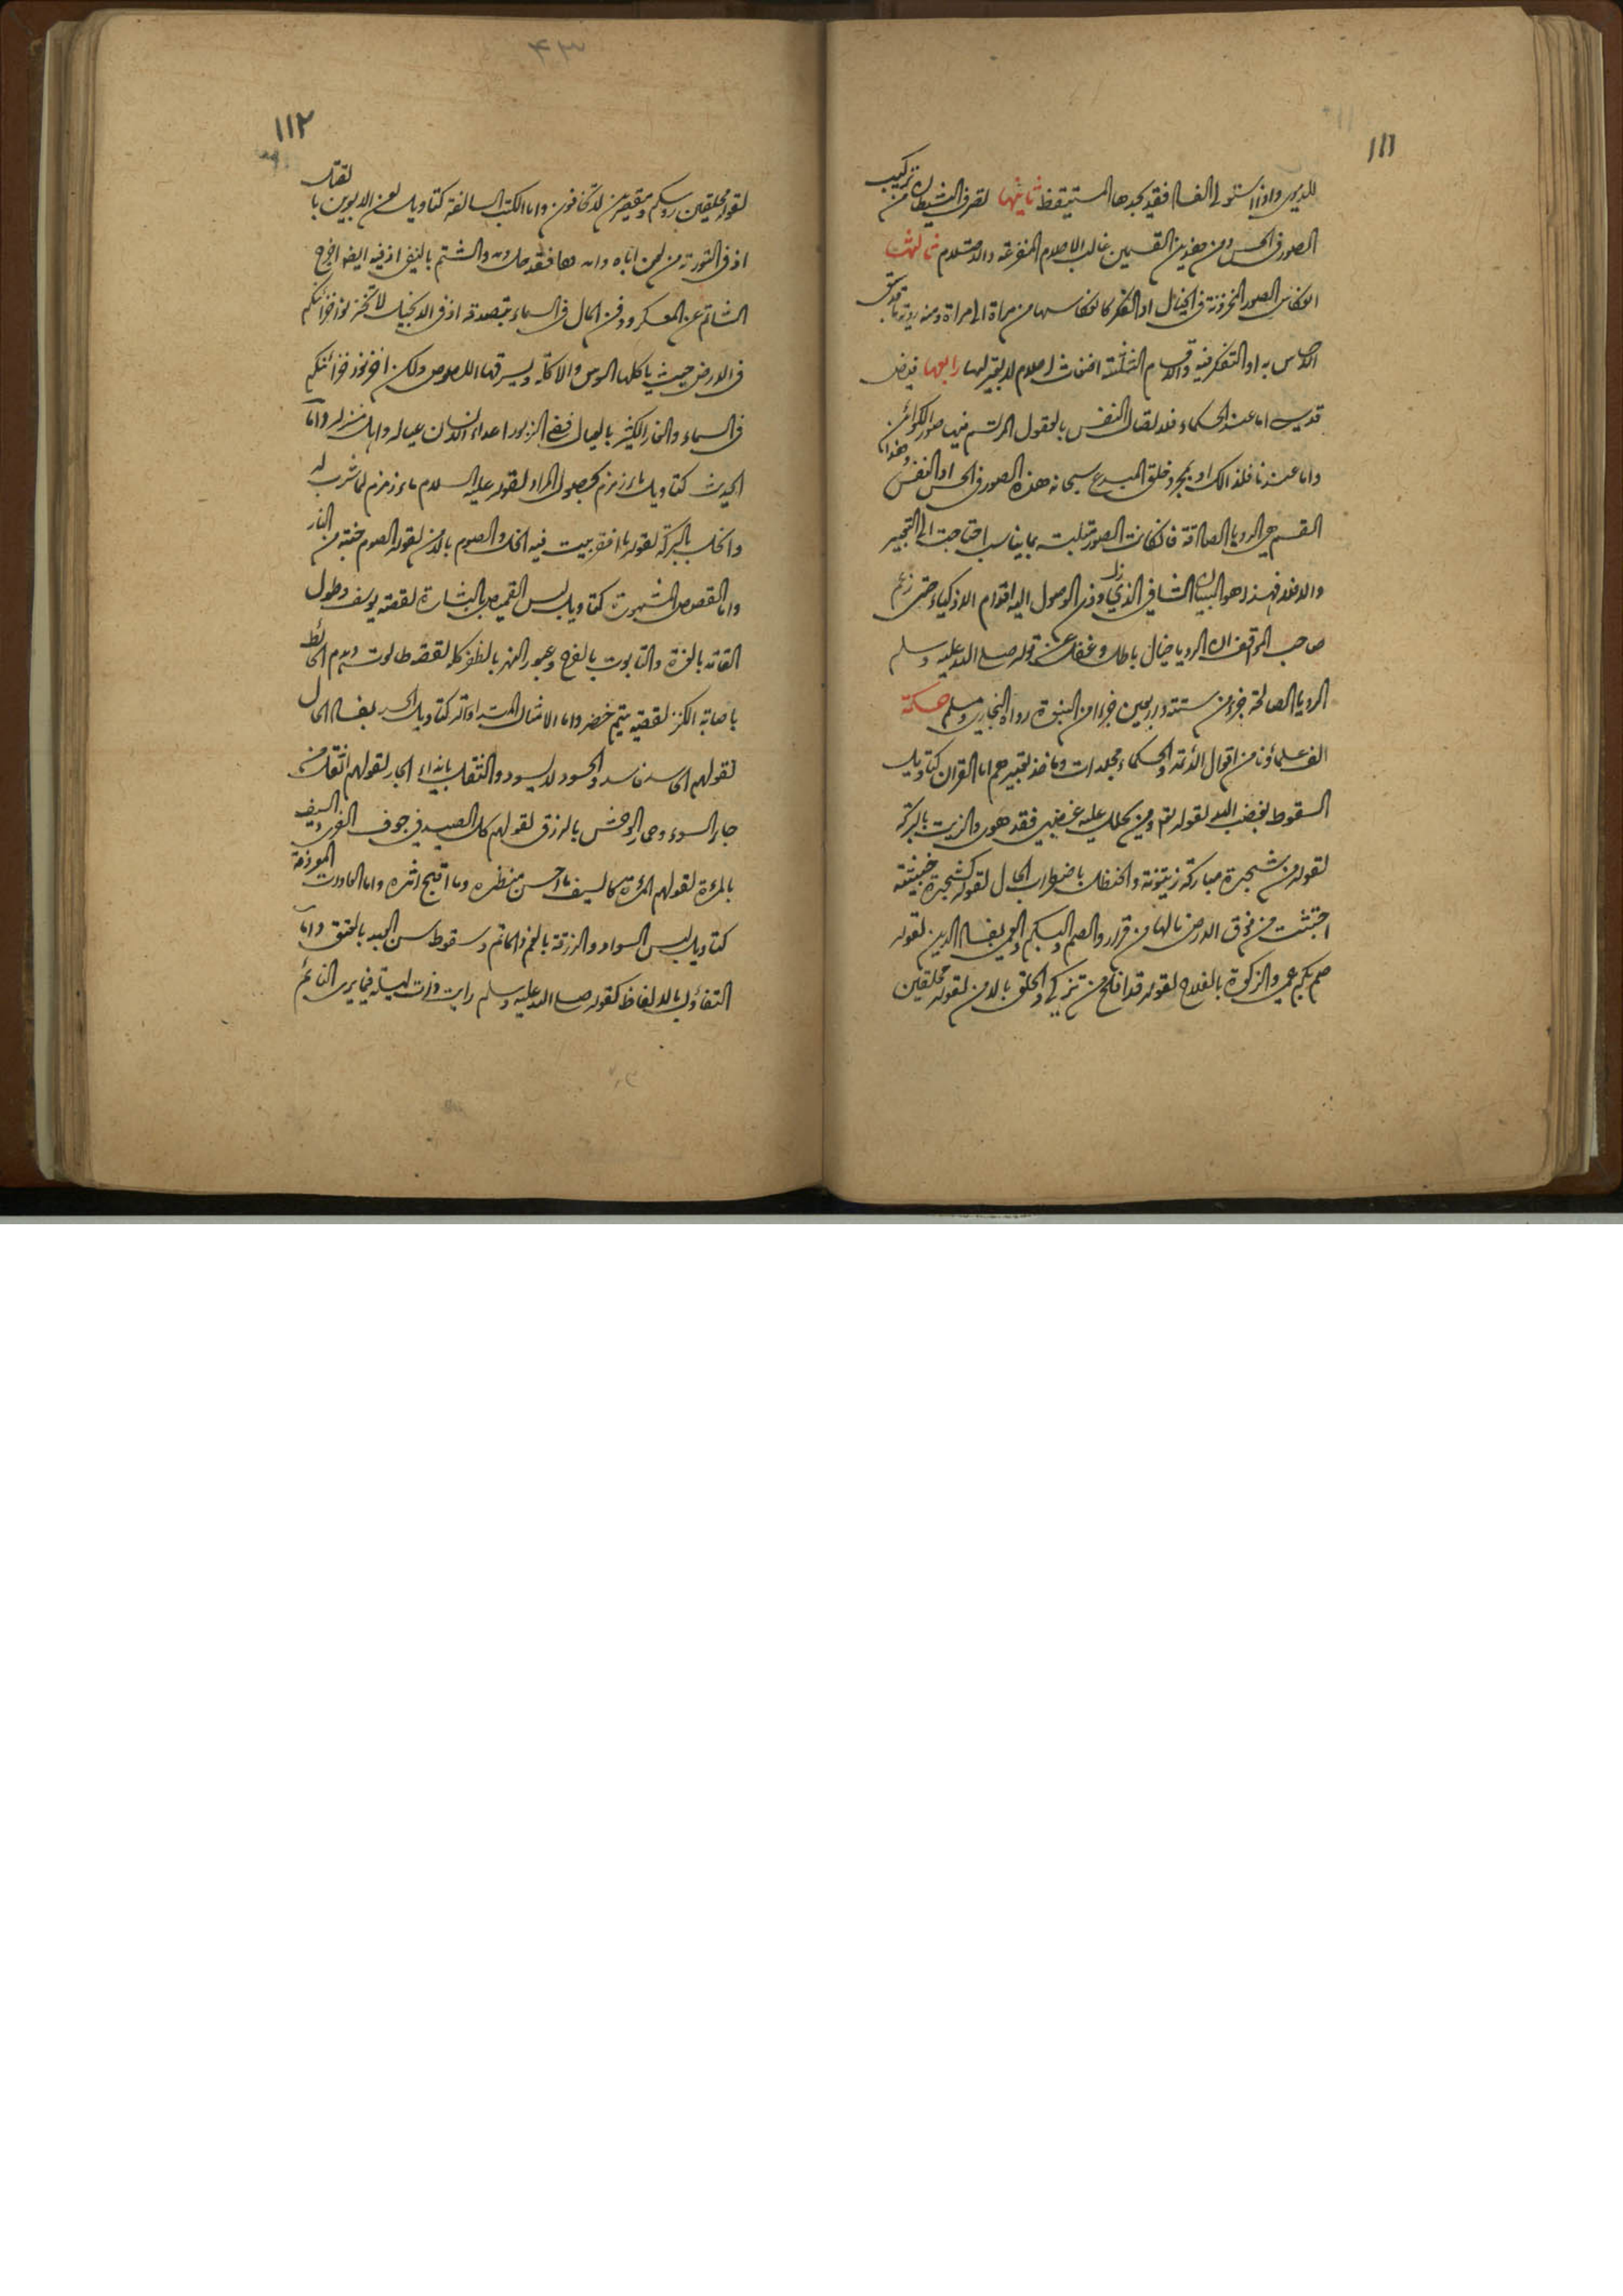 ١١١
للديوى واذا استولى الغسا فقيد يجدها المستيقظ ثانيها تصرف الشيطان من تركيب
الصور فى الحس ومن هذين القسمين غالب الاحلام المفزعة والاحتلام ثالثها
انعكاس الصور المخزونة فى الخيال او الفكر كانعكاسها من مراة الى مراة ومنه رويته ما توثق
الاحساس به او التفكر فيه والاقسام الثلثة اضغاث احلام لا تعبير لها رابعها فيض
قدسى اما عند الحكماء فلاتصال النفس بالعقول المرتسم فيها صور الكوائن
واما عندنا فلذالك او بمجرد خلق المبدع سبحانه هذه الصور فى الحس او النفس وهذا
القسم هى الرويا الصادقة فان كانت الصور متلبسة بما يناسب احتاجت الى التعبير
والا فلا فهذا هو البيان الشافى الذى زل دون الوصول اليه اقدام الاذكياء حتى زعم
صاحب المواقف ان الرويا خيال باطل وغفل عن قوله صلى الله عليه وسلم
الرويا الصالحة جزء من ستة واربعين جزءا من النبوة رواه البخارى ومسلم حكمة
الف علماؤنا من اقوال الائمة والحكماء مجلدات وماخذ تعبيرهم اما القران كتاويل
السقوط بغضب الله لقوله تعم ومن يحلل عليه غضبى فقد هوى والزيت بالبركة
لقوله من شجرة مباركة زيتونة والحنظل باضطراب الحال لقوله كشجرة خبيثة
اجتثت من فوق الارض مالها من قرار والصم والبكم والعمى بفساد الدين لقوله
صم بكم عمى والزكوة بالفلاح لقوله قد افلح من تزكى والحلق بالامن لقوله محلقين
١١٢
لقوله محلقين روسكم ومقصرين لا تخافون واما الكتب السالفة كتاويل لعن الابوين بالقتل
اذ فى التورية من لعن اباه وامه فقد حل دمه والشتم بالنفى اذ فيه ايضا اخرج
الشاتم عن المعسكر ودفن المال فى السماء بتصدقه اذ فى الانجيل لا تخزنوا خزائنكم
فى الارض حيث ياكلها السوس والاكلة ويسرقها اللصوص ولكن اخزنوا خزائنكم
فى السماء والفار الكثير بالعيال ففى الزبور اعداء الانسان عياله واهل منزله واما
الحديث كتاويل ماء زمزم بحصول المراد لقوله عليه السلام ماء زمزم لما شرب له
والخل بالبركة لقوله ما افقر بيت فيه الخل والصوم بالامن لقوله الصوم جنة من النار
واما القصص المشهورة كتاويل لبس القميص بالبشارة لقصة يوسف وطول
القامة بالعزة والتابوت بالفرح وعبور النهر بالظفر كله لقصة طالوت وهدم الحائط
باصابة الكنز لقصة يتيم خضر واما الامثال المتداولة كتاويل الحسد بفساد الحال
لقولهم الحاسد فاسد والحسود لا يسود والتنقل بايذاء الجار لقولهم انتقل من
جار السوء وحمار الوحش بالرزق لقولهم كل الصيد فى جوف الفرى والسيف
بالمرءة لقولهم المرءة كالسيف ما احسن منظره وما اقبح اثره واما العادت الموذنة
كتاويل لبس السواد والزرقة بالغم والماتم وسقوط سن العبد بالعتق واما
التفاؤل بالالفاظ كقوله صلى الله عليه وسلم رايت ذات ليلة فيما يرى النائم